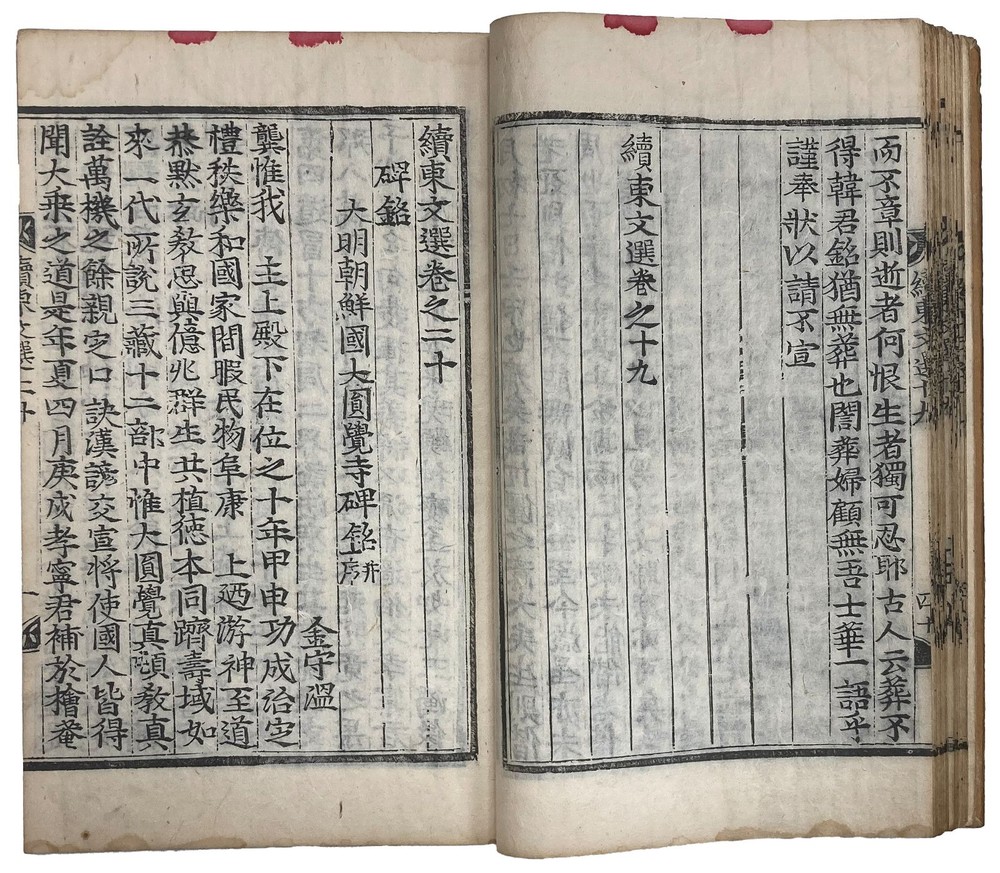 而不章則逝者何恨生者獨可忍耶古人云葬不
得韓君銘猶無葬也誾葬婦顧無吾士華一語乎
謹奉狀以請不宣
續東文選卷之十九
續東文選十九
四十
續東文選卷之二十
碑銘
大明朝鮮國大圓覺寺碑銘并序
金守溫
龔惟我 主上殿下在位之十年甲申功成治定
禮秩樂和國家閒暇民物阜康 上廼游神至道
恭默玄敎思與億兆群生共植德本同躋壽域如
來一代所說三藏十二部中惟大圓覺眞頓敎眞
詮萬機之餘親定口訣漢諺交宣將使國人皆得
聞大乘之道是年夏四月庚戌孝寧君補於檜菴
續東文選二十
一